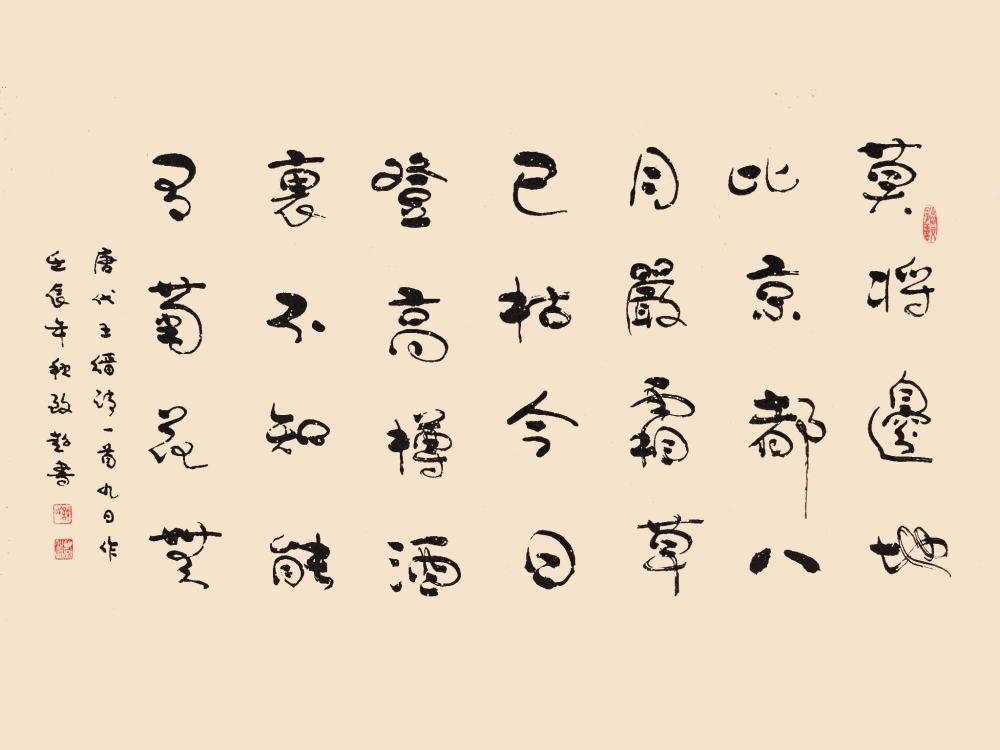 莫將邊地
比京都八
月嚴霜草
已枯今日
登高樽酒
裏不知能
有菊花無
唐代王縉詩一首九日作
壬辰年秋政書